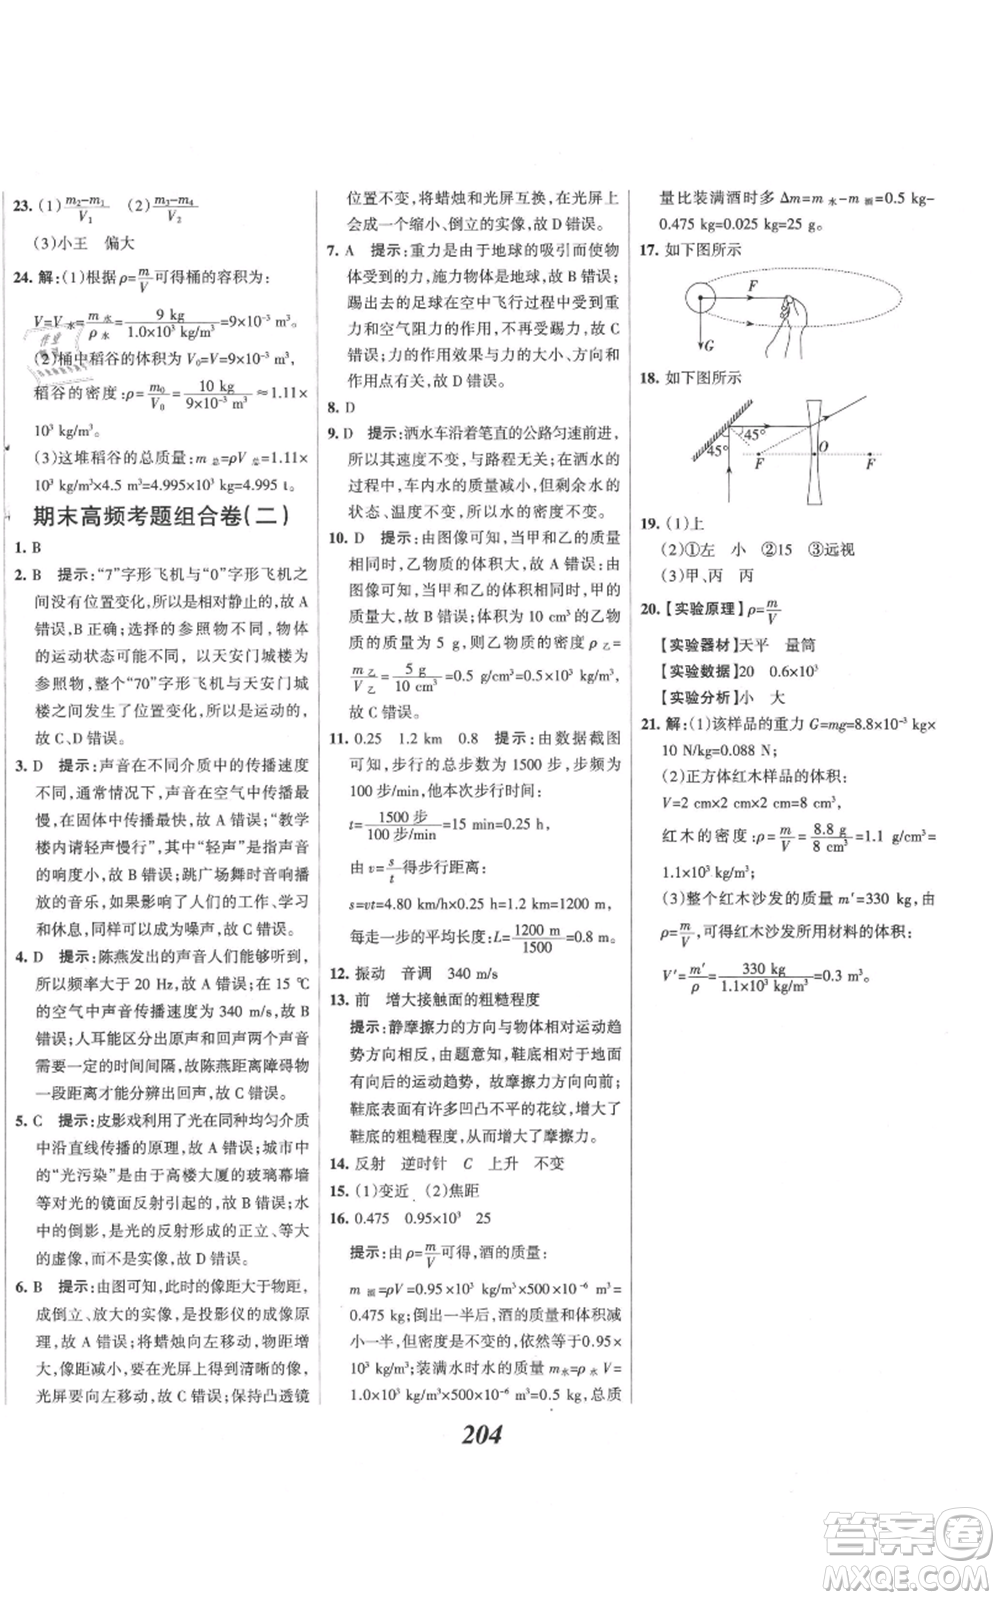 23. (1) (m₂−m₁)/V₁ (2) (m₃−m₄)/V₂
(3)小王 偏大
24. 解:(1)根据 ρ=m/V 可得桶的容积为:
V=V水=m水/ρ水=9 kg/1.0×10³ kg/m³=9×10⁻³ m³
(2)桶中稻谷的体积为 V₀=V=9×10⁻³ m³
稻谷的密度:ρ=m₀/V₀=10 kg/9×10⁻³ m³≈1.11×
10³ kg/m³。
(3)这堆稻谷的总质量:m总=ρV总=1.11×
10³ kg/m³×4.5 m³=4.995×10³ kg=4.995 t。
期末高频考题组合卷(二)
1. B
2. B 提示:“7”字形飞机与“0”字形飞机之
间没有位置变化,所以是相对静止的,故 A
错误,B 正确;选择的参照物不同,物体
的运动状态可能不同,以天安门城楼为
参照物,整个“70”字形飞机与天安门城
楼之间发生了位置变化,所以是运动的,
故 C、D 错误。
3. D 提示:声音在不同介质中的传播速度
不同,通常情况下,声音在空气中传播最
慢,在固体中传播最快,故 A 错误;“教学
楼内请轻声慢行”中的“轻声”是指声音
的响度小,故 B 错误;跳广场舞时高音播
放的音乐,如果影响了人们的工作、学习
和休息,同样可以成为噪声,故 C 错误。
4. D 提示:陈燕发出的声音人们能够听到,
所以频率大于 20 Hz,故 A 错误;在 15 ℃
的空气中声音传播速度为 340 m/s,故 B
错误;人耳能区分出原声和回声两个声音
需要一定的时间间隔,故陈燕距离障碍物
一段距离才能分辨出回声,故 C 错误。
5. C 提示:皮影戏利用了光在同种均匀介质
中沿直线传播的原理,故 A 错误;城市中
的“光污染”是由于高楼大厦的玻璃幕墙
等对光的镜面反射引起的,故 B 错误;水
中的倒影,是光的反射形成的正立、等大
的虚像,而不是实像,故 D 错误。
6. B 提示:由图可知,此时的像距大于物距,
成倒立、放大的实像,是投影仪的成像原
理,故 A 错误;将蜡烛向左移动,物距增
大,像距减小,要在光屏上得到清晰的像,
光屏要向左移动,故 C 错误;保持凸透镜
位置不变,将蜡烛和光屏互换,在光屏上
会成一个缩小、倒立的实像,故 D 错误。
7. A 提示:重力是由于地球的吸引而使物
体受到的,施力物体是地球,故 B 错误;
踢出去的足球在空中飞行过程中,受到重
力和空气阻力的作用,不再受踢力,故 C
错误;力的作用效果与力的大小、方向和
作用点有关,故 D 错误。
8. D
9. D 提示:洒水车沿着笔直的公路匀速前进,
所以其速度不变,与路程无关;在洒水的
过程中,车内水的质量减小,但水的密度、
状态、温度不变,所以水的密度不变。
10. D 提示:由图像可知,当甲和乙的质量
相同时,乙物质的体积大,故 A 错误;由
图像可知,当甲和乙的体积相同时,甲的
质量大,故 B 错误;体积为 10 cm³ 的乙物
质的质量为 5 g,则乙物质的密度 ρ乙=
m乙/V乙=5 g/10 cm³=0.5 g/cm³=0.5×10³ kg/m³,故 C
错误。
11. 0.25 1.2 km 0.8 提示:由数据截图
可知,步行的总步数为 1500 步,步频为
100 步/min,他本次步行时间:
t=1500 步/100 步/min=15 min=0.25 h,
由 v=s/t 得步行距离:
s=vt=4.80 km/h×0.25 h=1.2 km=1200 m,
每走一步的平均长度:1200 m/1500=0.8 m。
12. 振动 音调 340 m/s
13. 前 增大接触面的粗糙程度
提示:静摩擦力的方向与物体相对运动趋
势方向相反,由题意知,鞋底相对于地面
有向后的运动趋势,故摩擦力方向向前;
鞋底上有许多凹凸不平的花纹,增大了
鞋底的粗糙程度,从而增大了摩擦力。
14. 反射 逆时针 C 上升 不变
15. (1)变近 (2)焦距
16. 0.475 0.95×10³ 25
提示:由 ρ=m/V 可得,酒的质量:
m酒=ρV=0.95×10³ kg/m³×500×10⁻⁶ m³=
0.475 kg;倒出一半后,酒的质量和体积减
小一半,但密度是不变的,依然等于0.95×
10³ kg/m³;装满水时水的质量 m水=ρ水V=
1.0×10³ kg/m³×500×10⁻⁶ m³=0.5 kg,总质
量比装满酒时多 Δm=m水−m酒=0.5 kg-
0.475 kg=0.025 kg=25 g。
17. 如下图所示
F
F
G
18. 如下图所示
45°
45°
F
O
F
19. (1)上
(2)①左 小 ②15 ③远视
(3)甲、丙 丙
20.【实验原理】ρ=m/V
【实验器材】天平 量筒
【实验数据】20 0.6×10³
【实验分析】小 大
21. 解:(1)该样品的重力 G=mg=8.8×10⁻³ kg×
10 N/kg=0.088 N;
(2)正方体红木样品的体积:
V=2 cm×2 cm×2 cm=8 cm³,
红木的密度:ρ=m/V=8.8 g/8 cm³=1.1 g/cm³=
1.1×10³ kg/m³;
(3)整个红木沙发的质量 m′=330 kg,由
ρ=m/V,可得红木沙发所用材料的体积:
V′=m′/ρ=330 kg/1.1×10³ kg/m³=0.3 m³。
204
答案圈
MXQE.COM